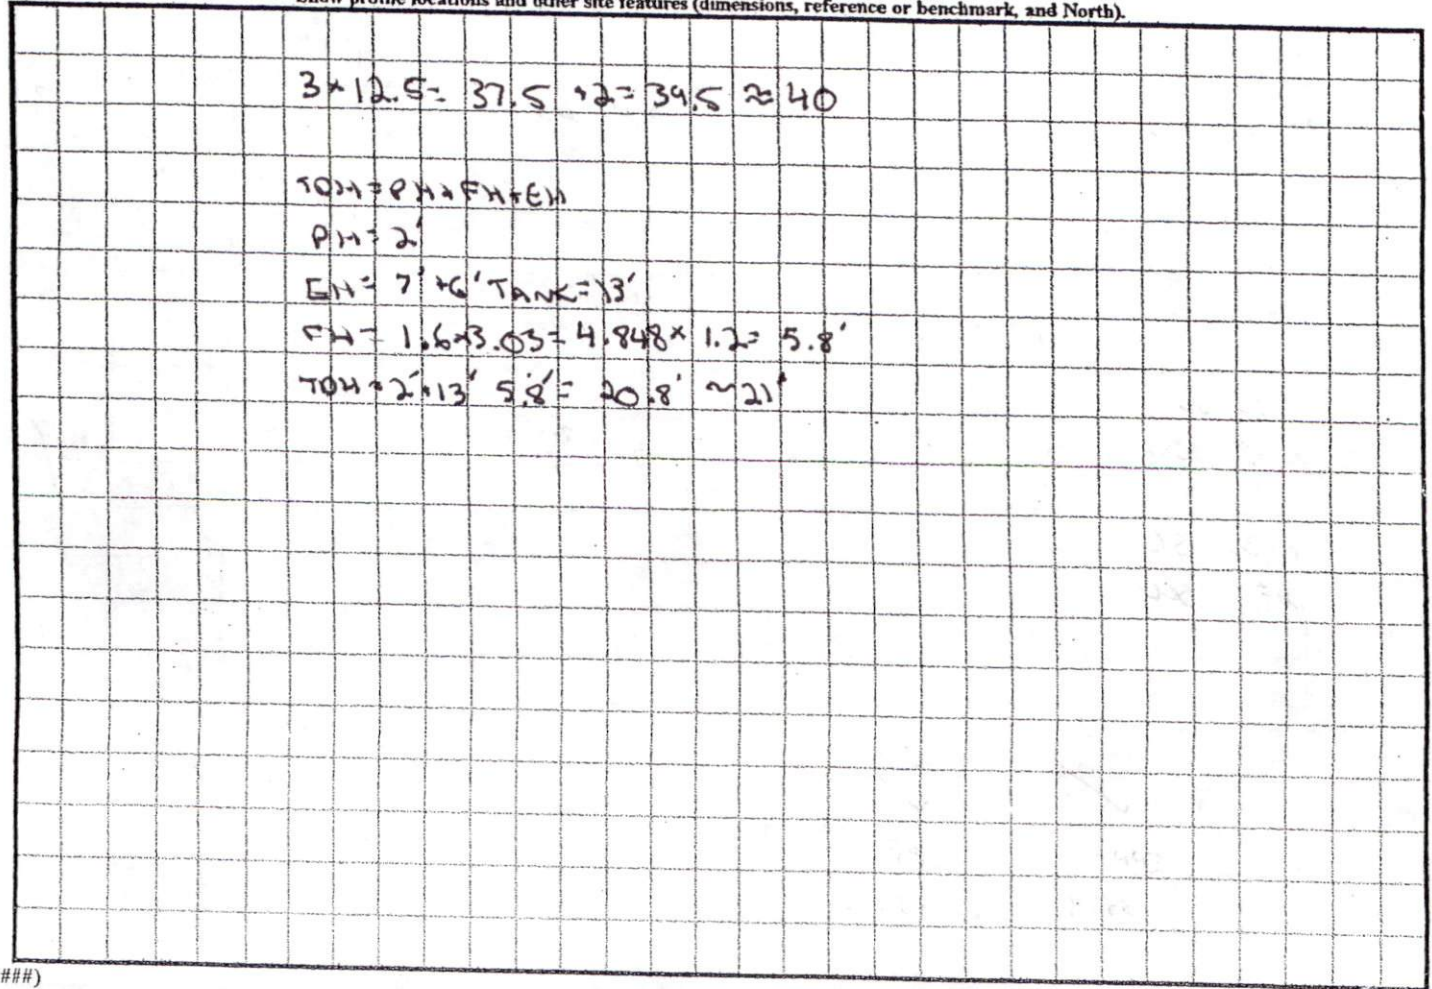 Show profile locations and other site features (dimensions, reference or benchmark, and North).
3 × 12.5 = 37.5 + 2 = 39.5 ≈ 40
TDH = PH + FH + EH
PH = 2'
EH = 7' + 6' TANK = 13'
FH = 1.6 × 3.03 = 4.848 × 1.2 = 5.8'
TDH = 2' + 13' 5.8' = 20.8' ~ 21'
###)